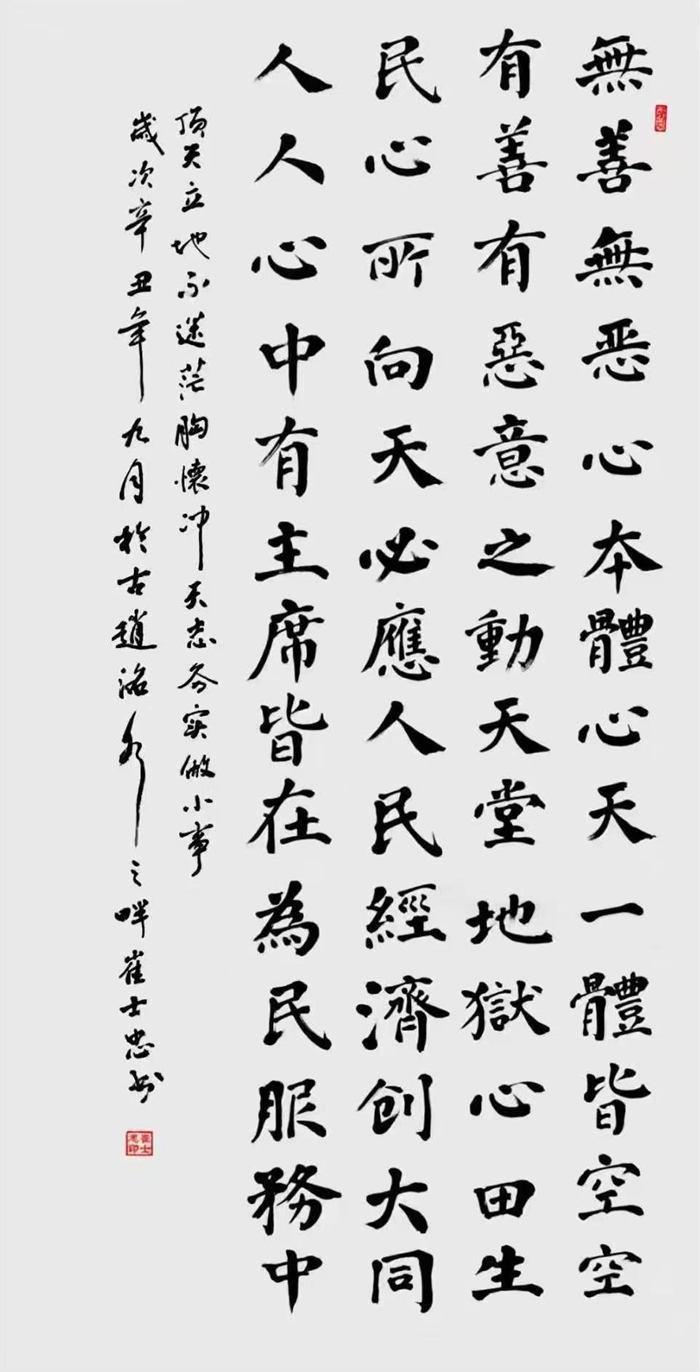 無善無恶心本體心天一體皆空空
有善有惡意之動天堂地獄心田生
民心所向天必應人民經濟创大同
人人心中有主席皆在為民服務中
頂天立地不迷茫胸懷冲天志务实做小事
歲次辛丑年九月於古趙洺水之畔崔士忠书
崔士忠印